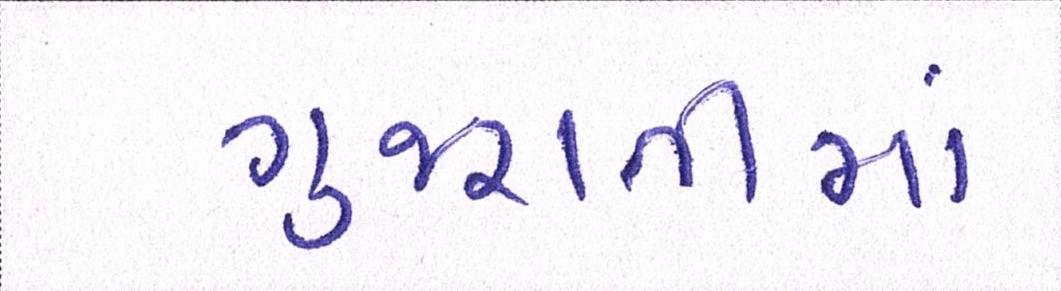 ગુજરાતીમાં